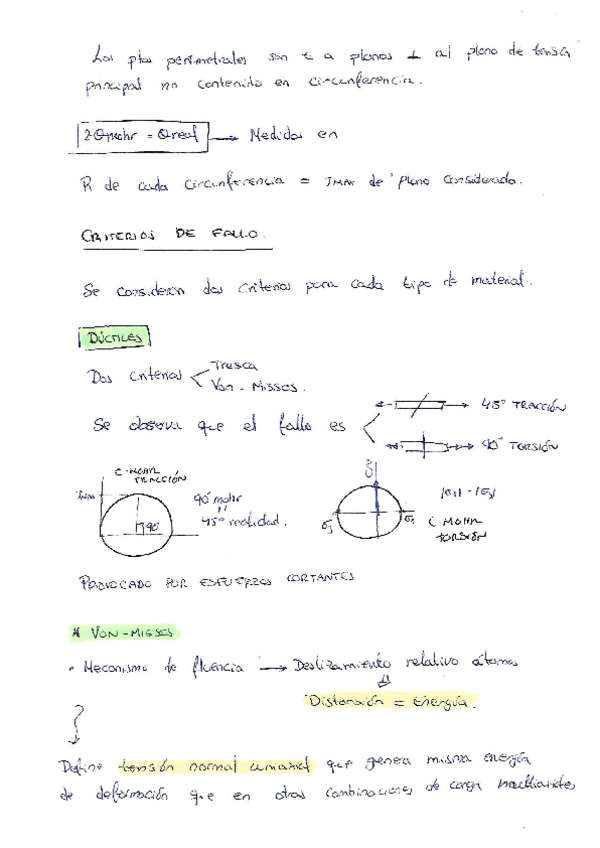 Los ptos perimetrales son τ a planos ⊥ al plano de tensión
principal no contenida en circunferencia.
2·θmohr = θreal → Medidos en
R de cada circunferencia = τMAX de plano considerado.
CRITERIOS DE FALLO.
Se consideran dos criterios para cada tipo de material.
DÚCTILES
Dos criterios
Tresca
Von-Misses.
Se observa que el fallo es
45° TRACCIÓN
90° TORSIÓN
C-MOHR
TRACCIÓN
90°
90° mohr
45° realidad.
σ3
σ1
|σ1|=|σ3|
C-MOHR
TORSIÓN
PROVOCADO POR ESFUERZOS CORTANTES
* VON-MISSES
• Mecanismo de fluencia → Deslizamiento relativo átomos
Distorsión = Energía.
Define tensión normal uniaxial que genera misma energía
de deformación que en otras combinaciones de carga